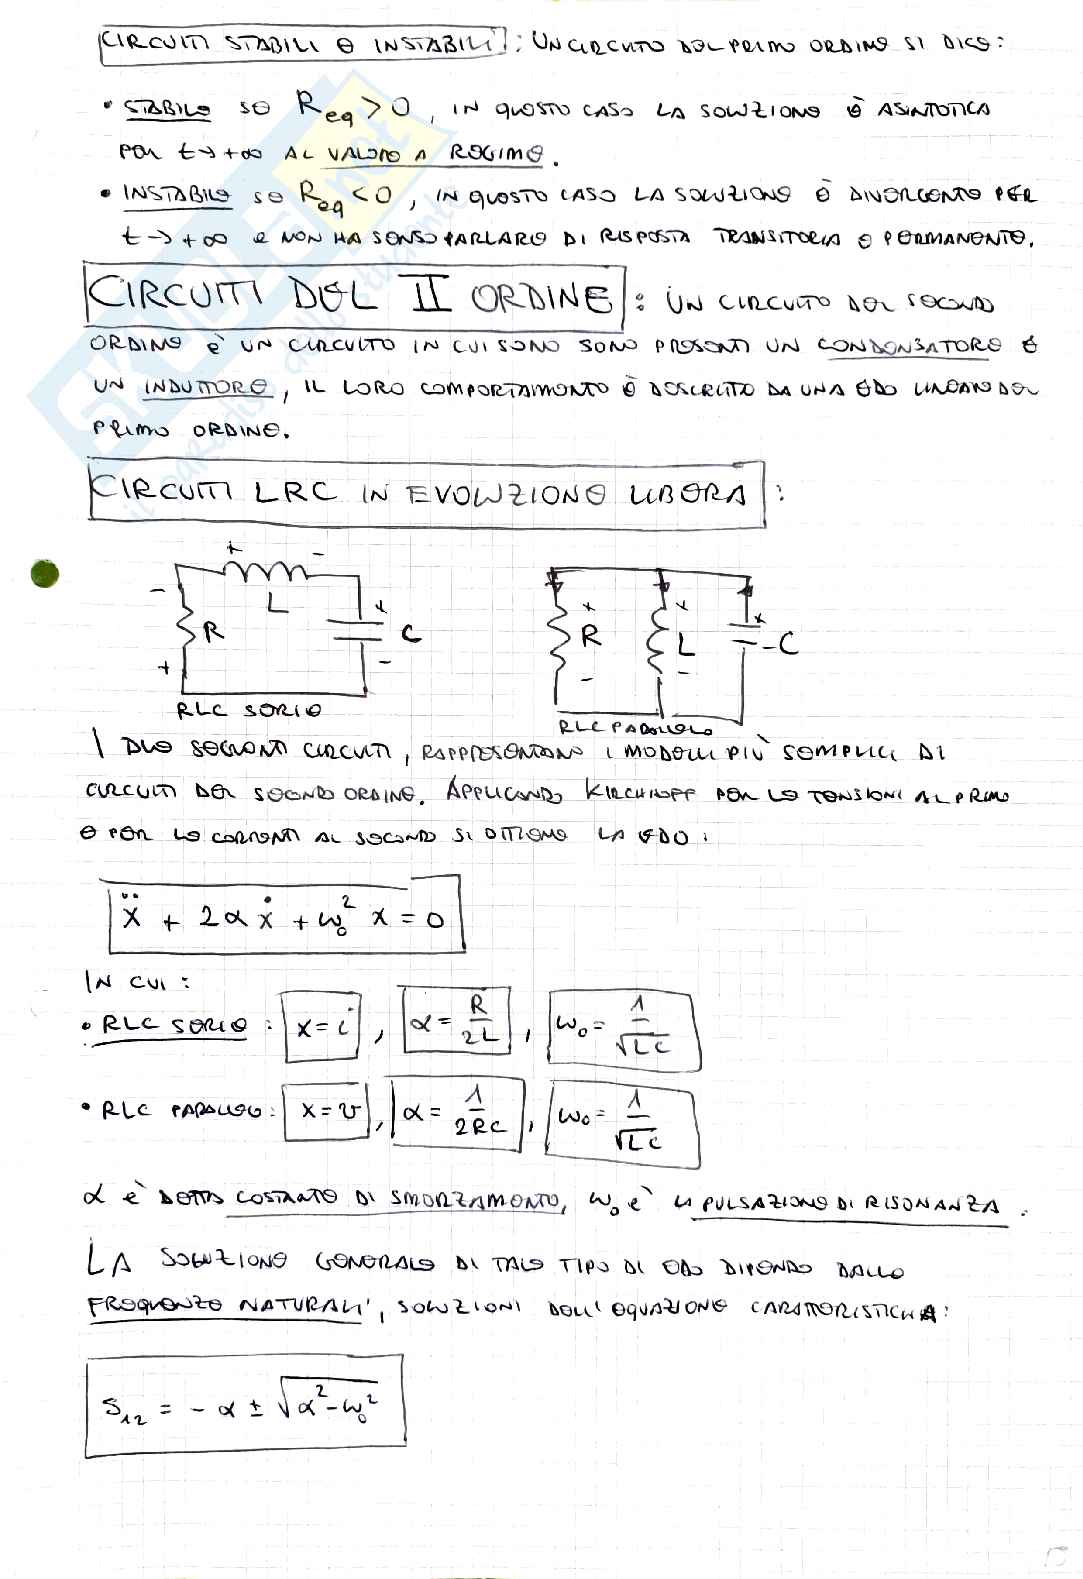 CIRCUITI STABILI E INSTABILI : UN CIRCUITO DEL PRIMO ORDINE SI DICE:
• STABILE SE Req > 0, IN QUESTO CASO LA SOLUZIONE È ASINTOTICA
PER t → +∞ AL VALORE A REGIME.
• INSTABILE SE Req < 0, IN QUESTO CASO LA SOLUZIONE È DIVERGENTE PER
t → +∞ E NON HA SENSO PARLARE DI RISPOSTA TRANSITORIA E PERMANENTE.
CIRCUITI DEL II ORDINE : UN CIRCUITO DEL SECONDO
ORDINE È UN CIRCUITO IN CUI SONO SONO PRESENTI UN CONDENSATORE E
UN INDUTTORE, IL LORO COMPORTAMENTO È DESCRITTO DA UNA EDO LINEARE DEL
PRIMO ORDINE.
CIRCUITI LRC IN EVOLUZIONE LIBERA :
+ -
- L + + + +
R C R L C
+ - - - -
RLC SERIE RLC PARALLELO
I DUE SEGUENTI CIRCUITI, RAPPRESENTANO I MODELLI PIÙ SEMPLICI DI
CIRCUITI DEL SECONDO ORDINE. APPLICANDO KIRCHHOFF PER LE TENSIONI AL PRIMO
E PER LE CORRENTI AL SECONDO SI OTTIENE LA EDO:
ẍ + 2α ẋ + ω₀² x = 0
IN CUI :
• RLC SERIE : x = i , α = R/2L , ω₀ = 1/√LC
• RLC PARALLELO : x = v , α = 1/2RC , ω₀ = 1/√LC
α È DETTA COSTANTE DI SMORZAMENTO, ω₀ È LA PULSAZIONE DI RISONANZA.
LA SOLUZIONE GENERALE DI TALE TIPO DI EDO DIPENDE DALLE
FREQUENZE NATURALI, SOLUZIONI DELL'EQUAZIONE CARATTERISTICA:
S₁₂ = - α ± √α² - ω₀²